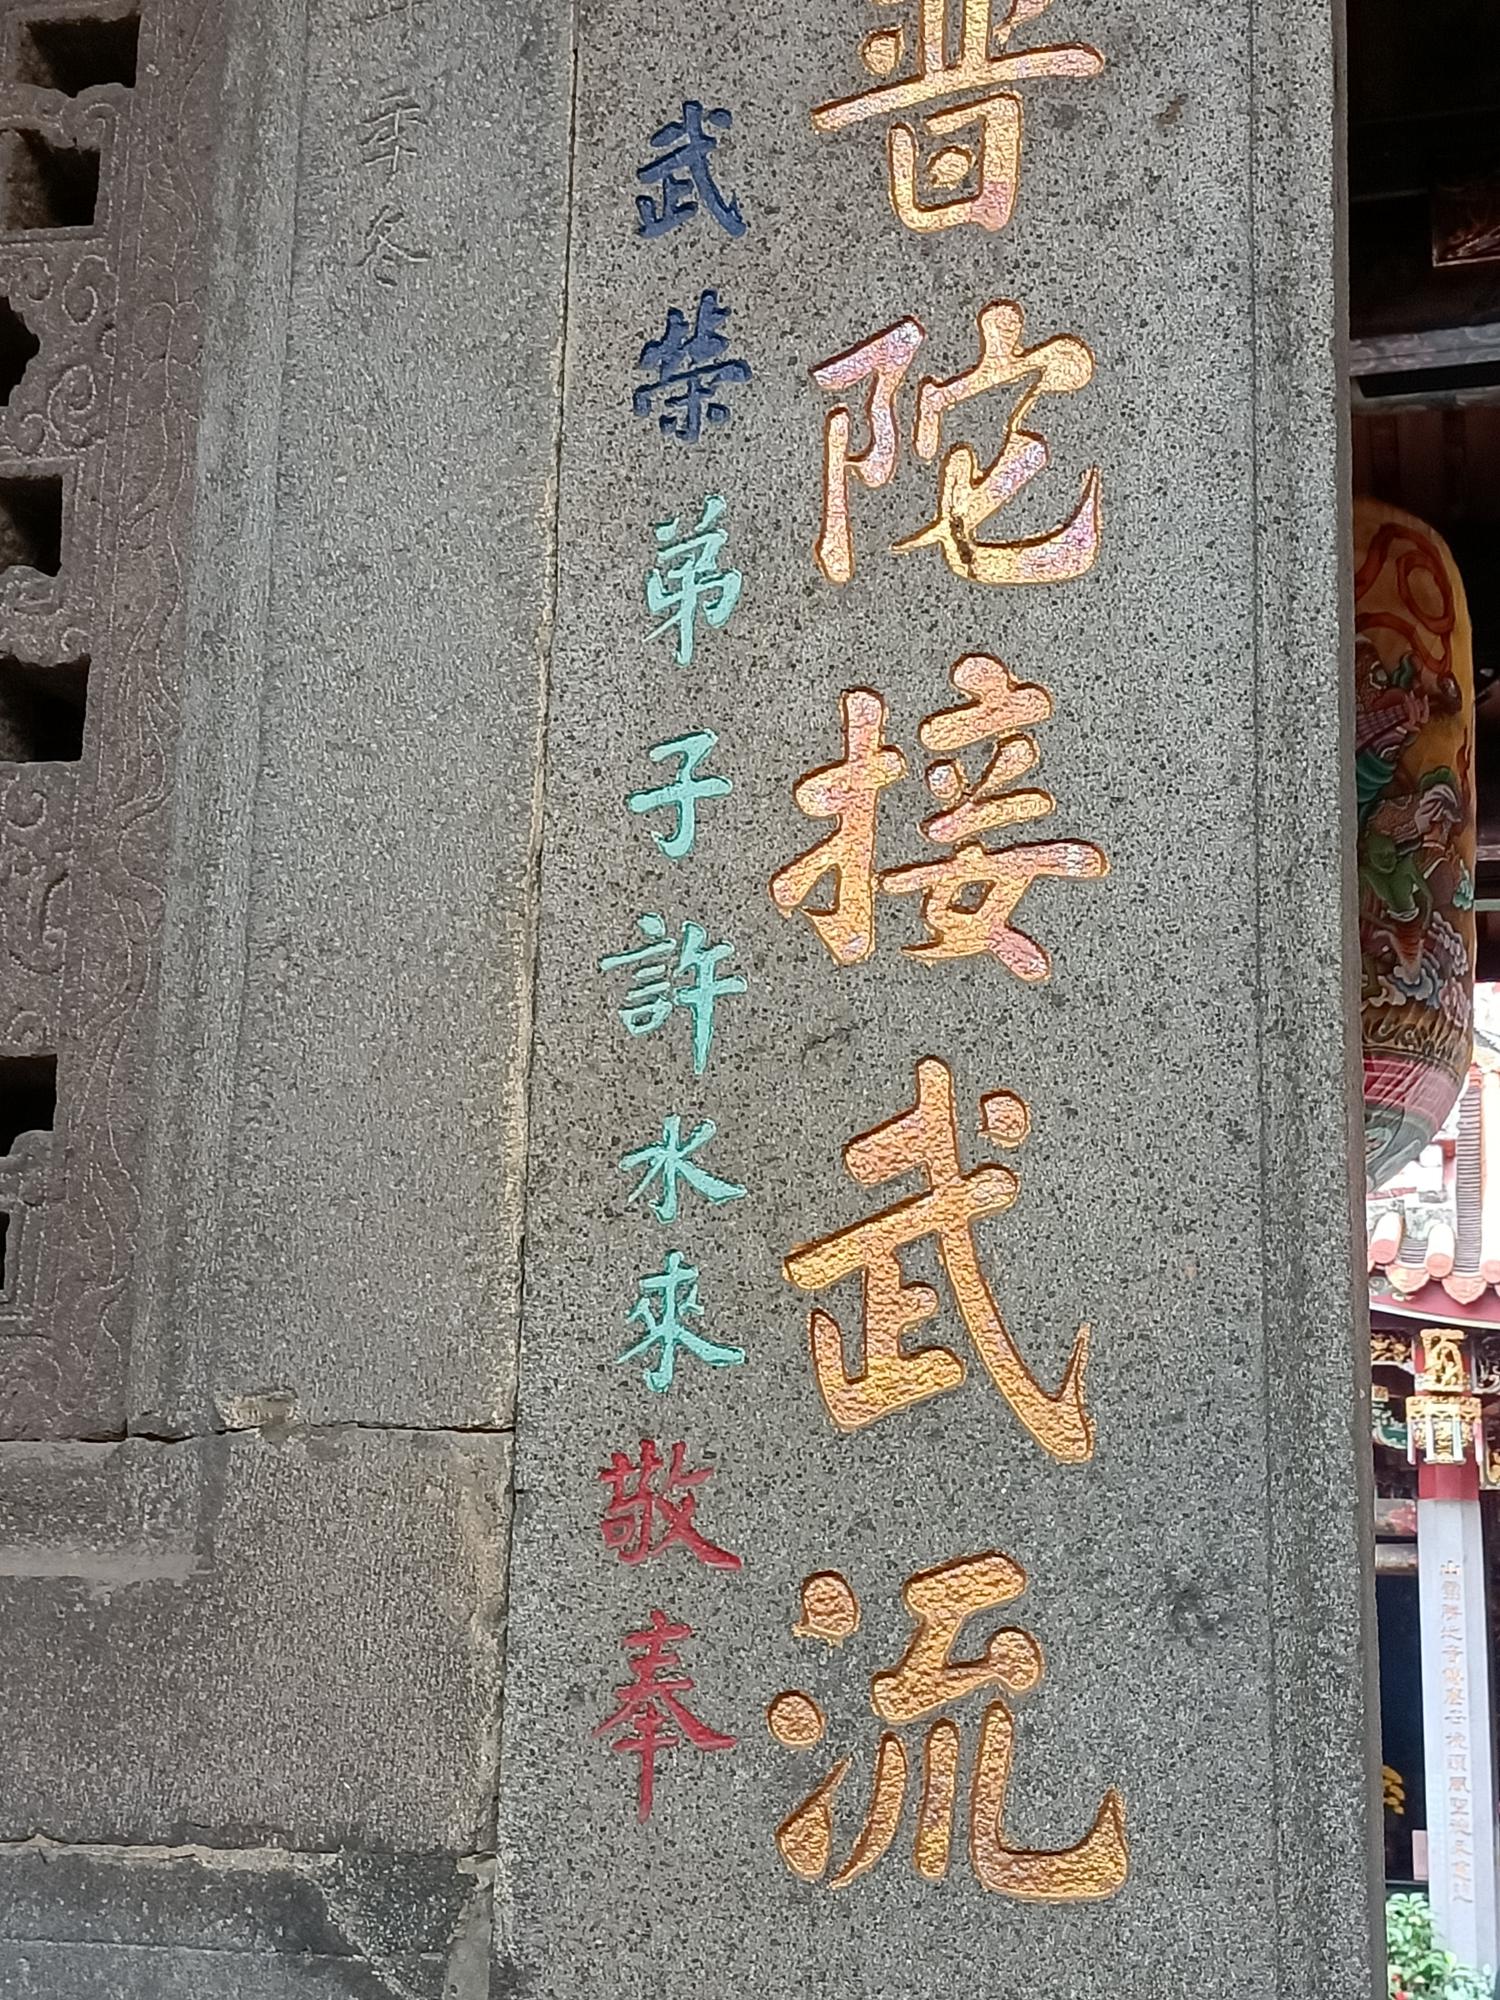 普陀接武流
武榮弟子許水來敬奉
年冬